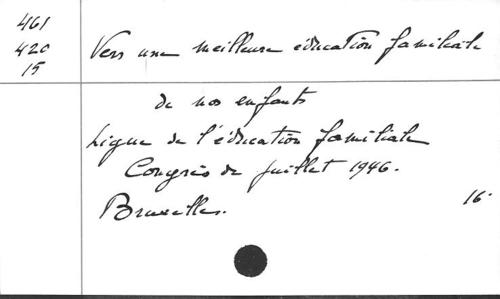 461
420
15
Vers une meilleure éducation familiale
de nos enfants
Ligue de l'éducation familiale
Congrès de juillet 1946.
Bruxelles.
16.